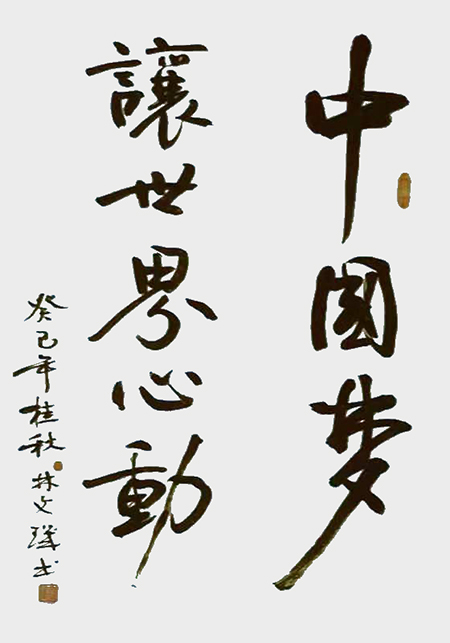 中國梦
讓世界心動
癸巳年桂秋 林文 书